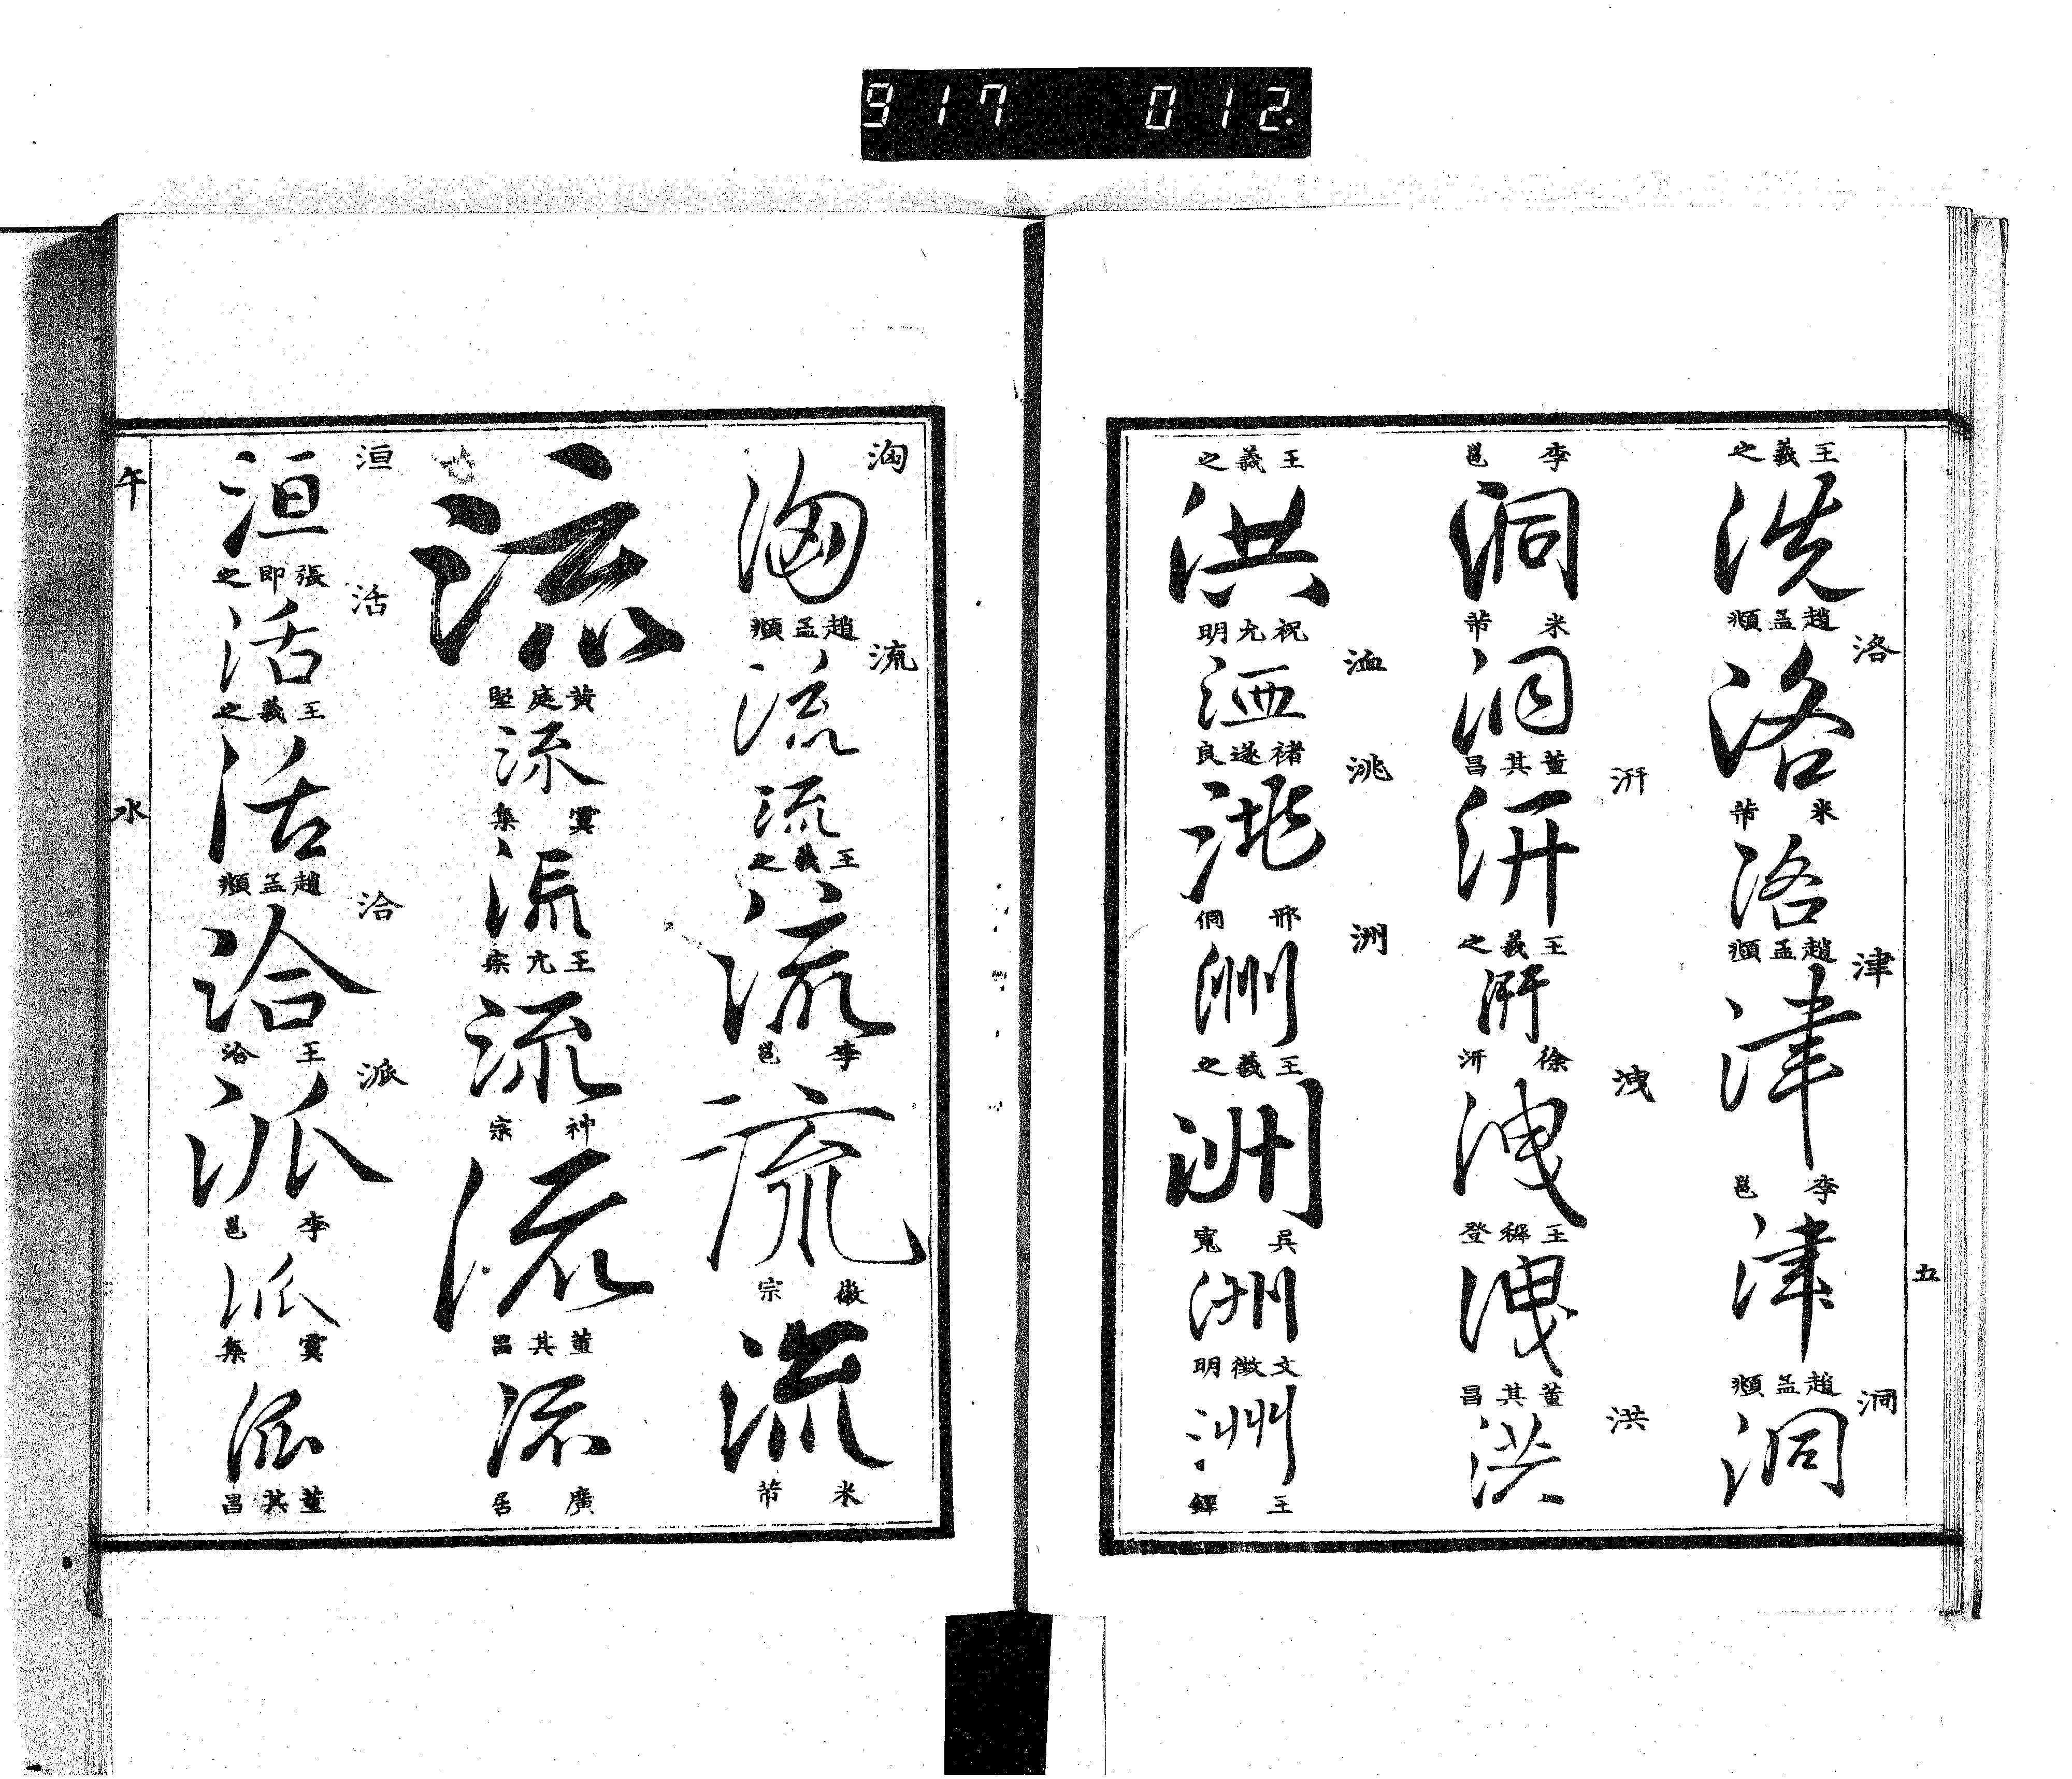 917 012
王羲之
洗
趙孟頫
洛
洛
米芾
洛
趙孟頫
津
津
李邕
津
趙孟頫
洞
洞
李邕
洞
米芾
洞
董其昌
汧
汧
王羲之
汧
徐汧
洩
洩
王穉登
洩
董其昌
洪
洪
王羲之
洪
祝允明
洫
洫
褚遂良
洮
洮
邢侗
洲
洲
王羲之
洲
吳寬
洲
文徵明
洲
王鐸
五
洶
洶
趙孟頫
流
流
流
王羲之
流
李邕
流
徽宗
流
米芾
流
黃庭堅
流
虞集
流
王亢宗
流
神宗
流
董其昌
流
廣居
洹
洹
張即之
活
活
王羲之
活
趙孟頫
洽
洽
王洽
派
派
李邕
派
虞集
派
董其昌
午
水